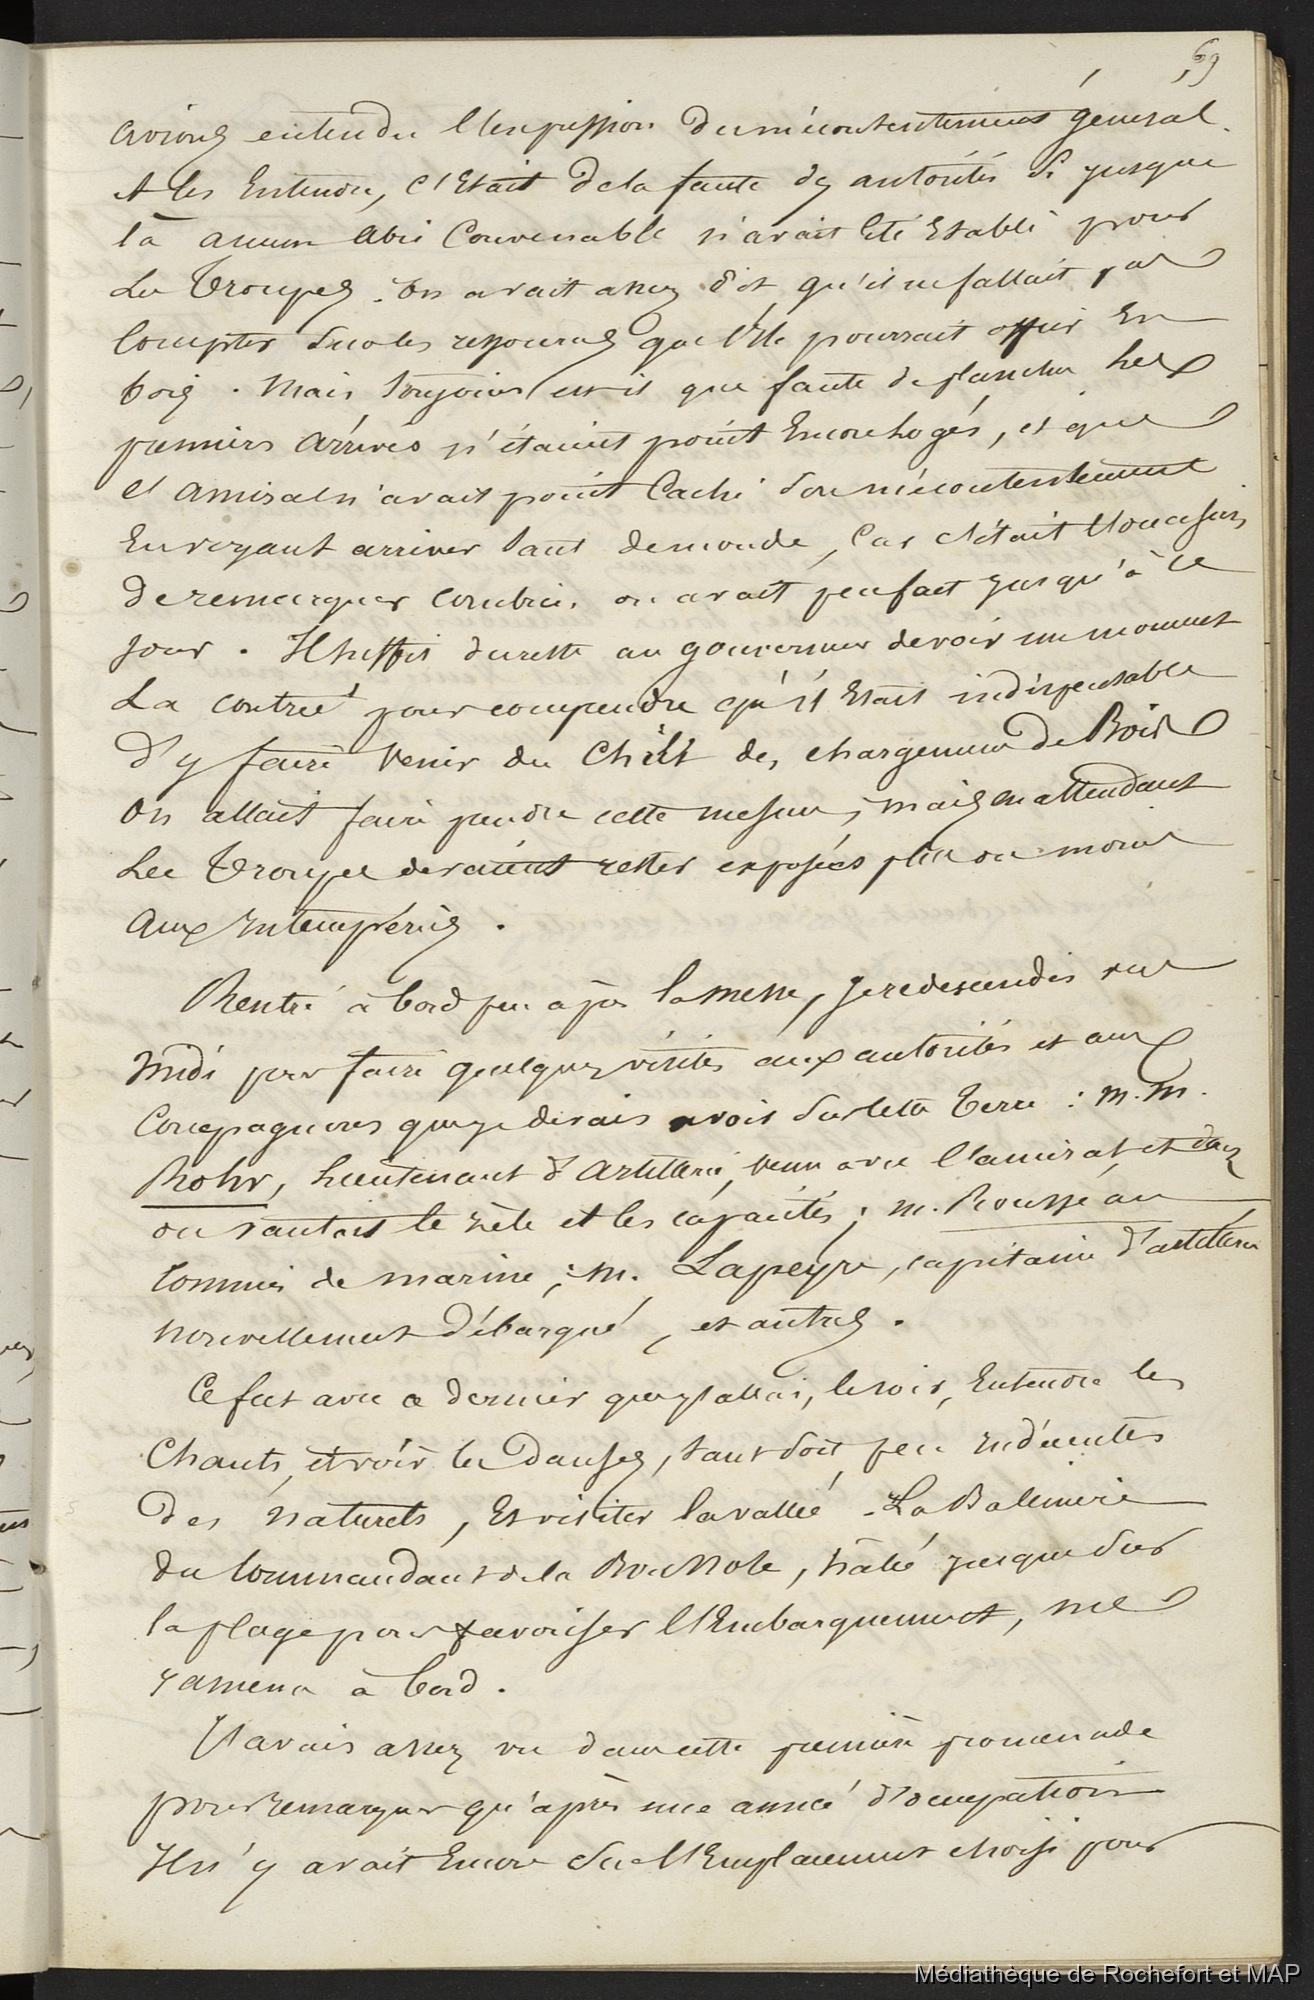 69
avions entendu l'expression du mécontentement général.
A les Entendre, c'Etait de la faute des autorités Si jusque
là aucun abri Convenable n'avait Eté Etabli pour
Les Troupes. On avait assez dit qu'il ne fallait pas
Compter Sur les ressources que l'Ile pourrait offrir En
bois. Mais toujours est-il que faute de planches Les
premiers arrivés n'étaient point Encore logés, et que
l'amiral n'avait point Caché Son mécontentement
En voyant arriver tant de monde, Car c'était l'occasion
De remarquer combien on avait peu fait jusqu'à ce
Jour. Il suffit du reste au gouverneur de voir un moment
La contrée pour comprendre qu'il Etait indispensable
D'y faire Venir du Chili des chargemens De Bois
On allait faire prendre cette mesure; mais en attendant
Les Troupes devaient rester exposées plus ou moins
Aux Intempéries.
Rentré à bord peu après la messe, Je redescendis vers
Midi pour faire quelques visites aux autorités et aux
Compagnons que je devais avoir Sur cette Terre : M.M.
Rohr, Lieutenant d'artillerie, venu avec l'amiral et dont
on vantait le zèle et les capacités; M. Rousseau
Commis de marine; M. Lapeyre, capitaine d'artillerie
nouvellement Débarqué, et autres.
Ce fut avec ce dernier que j'allai, le soir, Entendre les
Chants, et voir les Danses, tant soit peu indécentes
Des naturels, Et visiter la vallée. La Baleinière
du Commandant de la Boussole, hâlée jusque Sur
la plage pour favoriser l'Embarquement, me
ramena à bord.
J'avais assez vu dans cette première promenade
pour remarquer qu'après une année d'occupation
Il n'y avait Encore Sur l'Emplacement choisi pour
Médiathèque de Rochefort et MAP